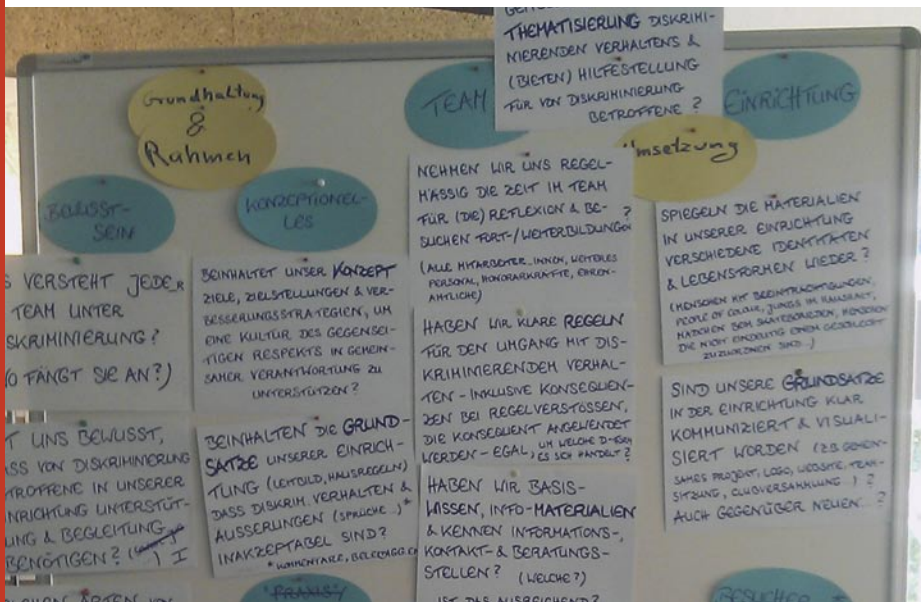 THEMATISIERUNG DISKRIMI-
NIERENDEN VERHALTENS &
(BIETEN) HILFESTELLUNG
FÜR VON DISKRIMINIERUNG
BETROFFENE ?
Grundhaltung
&
Rahmen
TEAM
EINRICHTUNG
Umsetzung
BEWUSST-
SEIN
KONZEPTIONEL-
LES
VERSTEHT JEDE_R
TEAM UNTER
SKRIMINIERUNG?
O FÄNGT SIE AN?)
T UNS BEWUSST,
ASS VON DISKRIMINIERUNG
TROFFENE IN UNSERER
INRICHTUNG UNTERSTÜT-
UNG & BEGLEITUNG
BENÖTIGEN?
BEINHALTET UNSER KONZEPT
ZIELE, ZIELSTELLUNGEN & VER-
BESSERUNGSSTRATEGIEN, UM
EINE KULTUR DES GEGENSEI-
TIGEN RESPEKTS IN GEMEIN-
SAMER VERANTWORTUNG ZU
UNTERSTÜTZEN?
BEINHALTEN DIE GRUND-
SÄTZE UNSERER EINRICH-
TUNG (LEITBILD, HAUSREGELN)
DASS DISKRIM. VERHALTEN &
ÄUSSERUNGEN (SPRÜCHE...)*
INAKZEPTABEL SIND?
* KOMMENTARE,
"PRAXIS"
NEHMEN WIR UNS REGEL-
MÄSSIG DIE ZEIT IM TEAM
FÜR (DIE) REFLEXION & BE-
SUCHEN FORT-/WEITERBILDUNGEN ?
(ALLE MITARBEITER_INNEN, WEITERES
PERSONAL, HONORARKRÄFTE, EHREN-
AMTLICHE)
HABEN WIR KLARE REGELN
FÜR DEN UMGANG MIT DIS-
KRIMINIERENDEM VERHAL-
TEN - INKLUSIVE KONSEQUEN-
ZEN BEI REGELVERSTÖSSEN,
DIE KONSEQUENT ANGEWENDET
WERDEN - EGAL, UM WELCHE
ES SICH HANDELT?
HABEN WIR BASIS-
WISSEN, INFO-MATERIALIEN
& KENNEN INFORMATIONS-,
KONTAKT- & BERATUNGS-
STELLEN? (WELCHE?)
IST DAS AUSREICHEND?
SPIEGELN DIE MATERIALIEN
IN UNSERER EINRICHTUNG
VERSCHIEDENE IDENTITÄTEN
& LEBENSFORMEN WIEDER ?
(MENSCHEN MIT BEEINTRÄCHTIGUNGEN,
PEOPLE OF COLOUR, JUNGS IM HAUSHALT,
MÄDCHEN BEIM SKATEBOARDEN, MENSCHEN
DIE NICHT EINDEUTIG EINEM GESCHLECHT
ZUZUORDNEN SIND...)
SIND UNSERE GRUNDSÄTZE
IN DER EINRICHTUNG KLAR
KOMMUNIZIERT & VISUALI-
SIERT WORDEN (Z.B. GEMEIN-
SAMES PROJEKT, LOGO, WEBSITE, TEAM-
SITZUNG, CLUBVERSAMMLUNG...) ?
AUCH GEGENÜBER NEUEN...?
BESUCHER